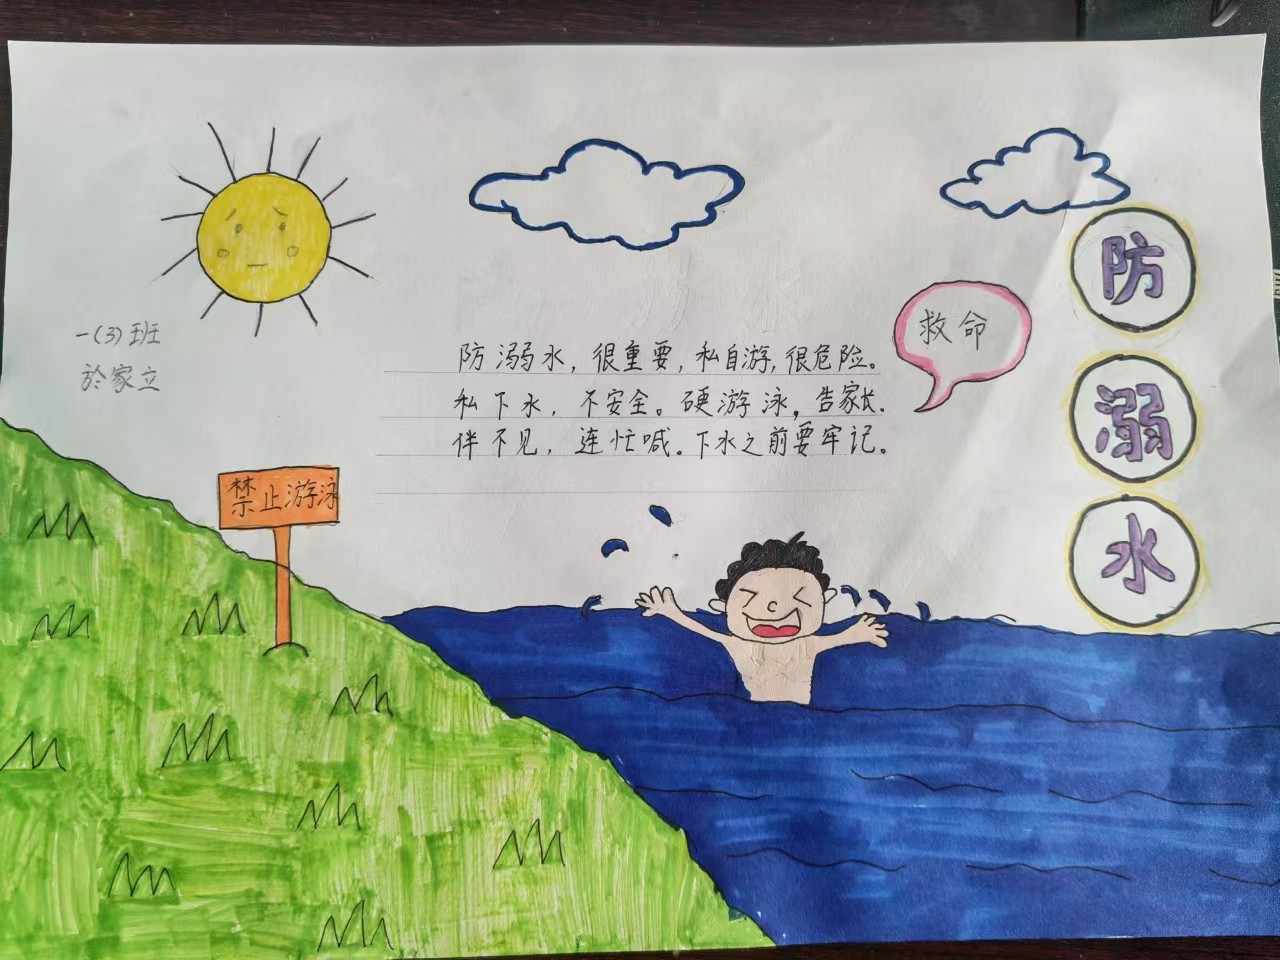 一(3)班
於家立
防溺水，很重要，私自游，很危险。
私下水，不安全。硬游泳，告家长.
伴不见，连忙喊。下水之前要牢记。
救命
防
溺
水
禁止游泳